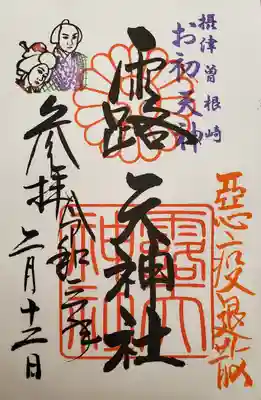 摂津曽根崎
お初天神
悪疫退散
露天神社
参拝
令和三年
二月十二日